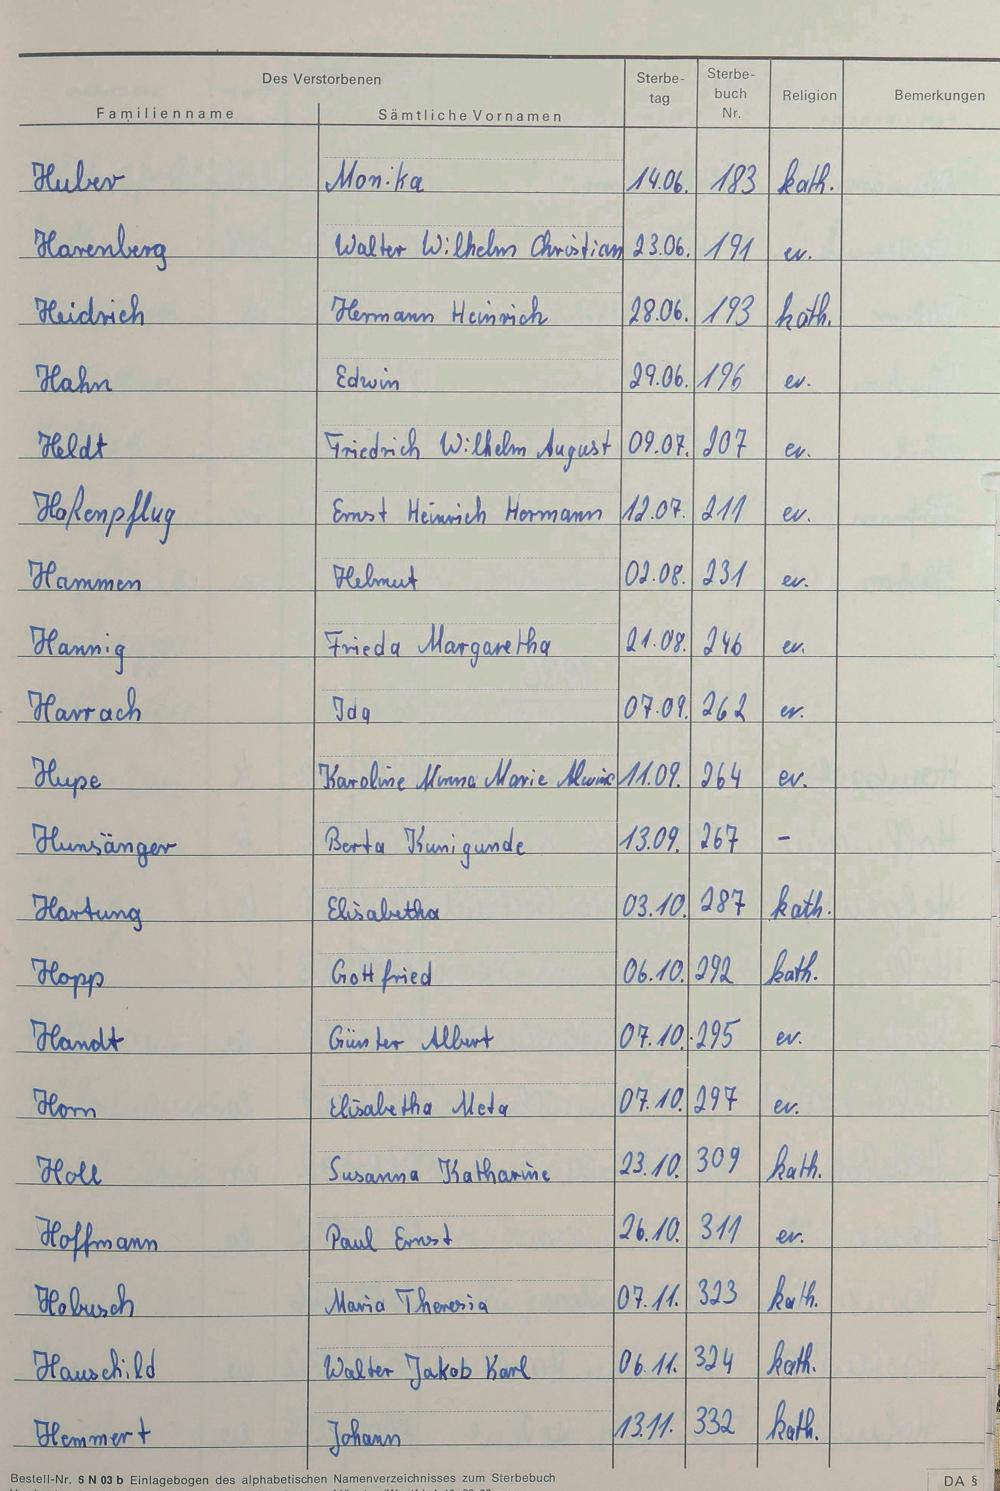 Des Verstorbenen
Familienname Sämtliche Vornamen Sterbe-tag Sterbe-buch Nr. Religion Bemerkungen
Huber Monika 14.06. 183 kath.
Harenberg Walter Wilhelm Christian 23.06. 191 ev.
Heidrich Hermann Heinrich 28.06. 193 kath.
Hahn Edwin 29.06. 196 ev.
Heldt Friedrich Wilhelm August 09.07. 207 ev.
Haßenpflug Ernst Heinrich Hermann 12.07. 211 ev.
Hammen Helmut 02.08. 231 ev.
Hannig Frieda Margaretha 21.08. 246 ev.
Harrach Ida 07.09. 262 ev.
Hupe Karoline Minna Marie Alwine 11.09. 264 ev.
Hunsänger Berta Kunigunde 13.09. 267 –
Hartung Elisabetha 03.10. 287 kath.
Hopp Gottfried 06.10. 292 kath.
Handt Günter Albert 07.10. 295 ev.
Horn Elisabetha Meta 07.10. 297 ev.
Holl Susanna Katharine 23.10. 309 kath.
Hoffmann Paul Ernst 26.10. 311 ev.
Habusch Maria Theresia 07.11. 323 kath.
Hauschild Walter Jakob Karl 06.11. 324 kath.
Hemmert Johann 13.11. 332 kath.
Bestell-Nr. S N 03 b Einlagebogen des alphabetischen Namenverzeichnisses zum Sterbebuch
DA §